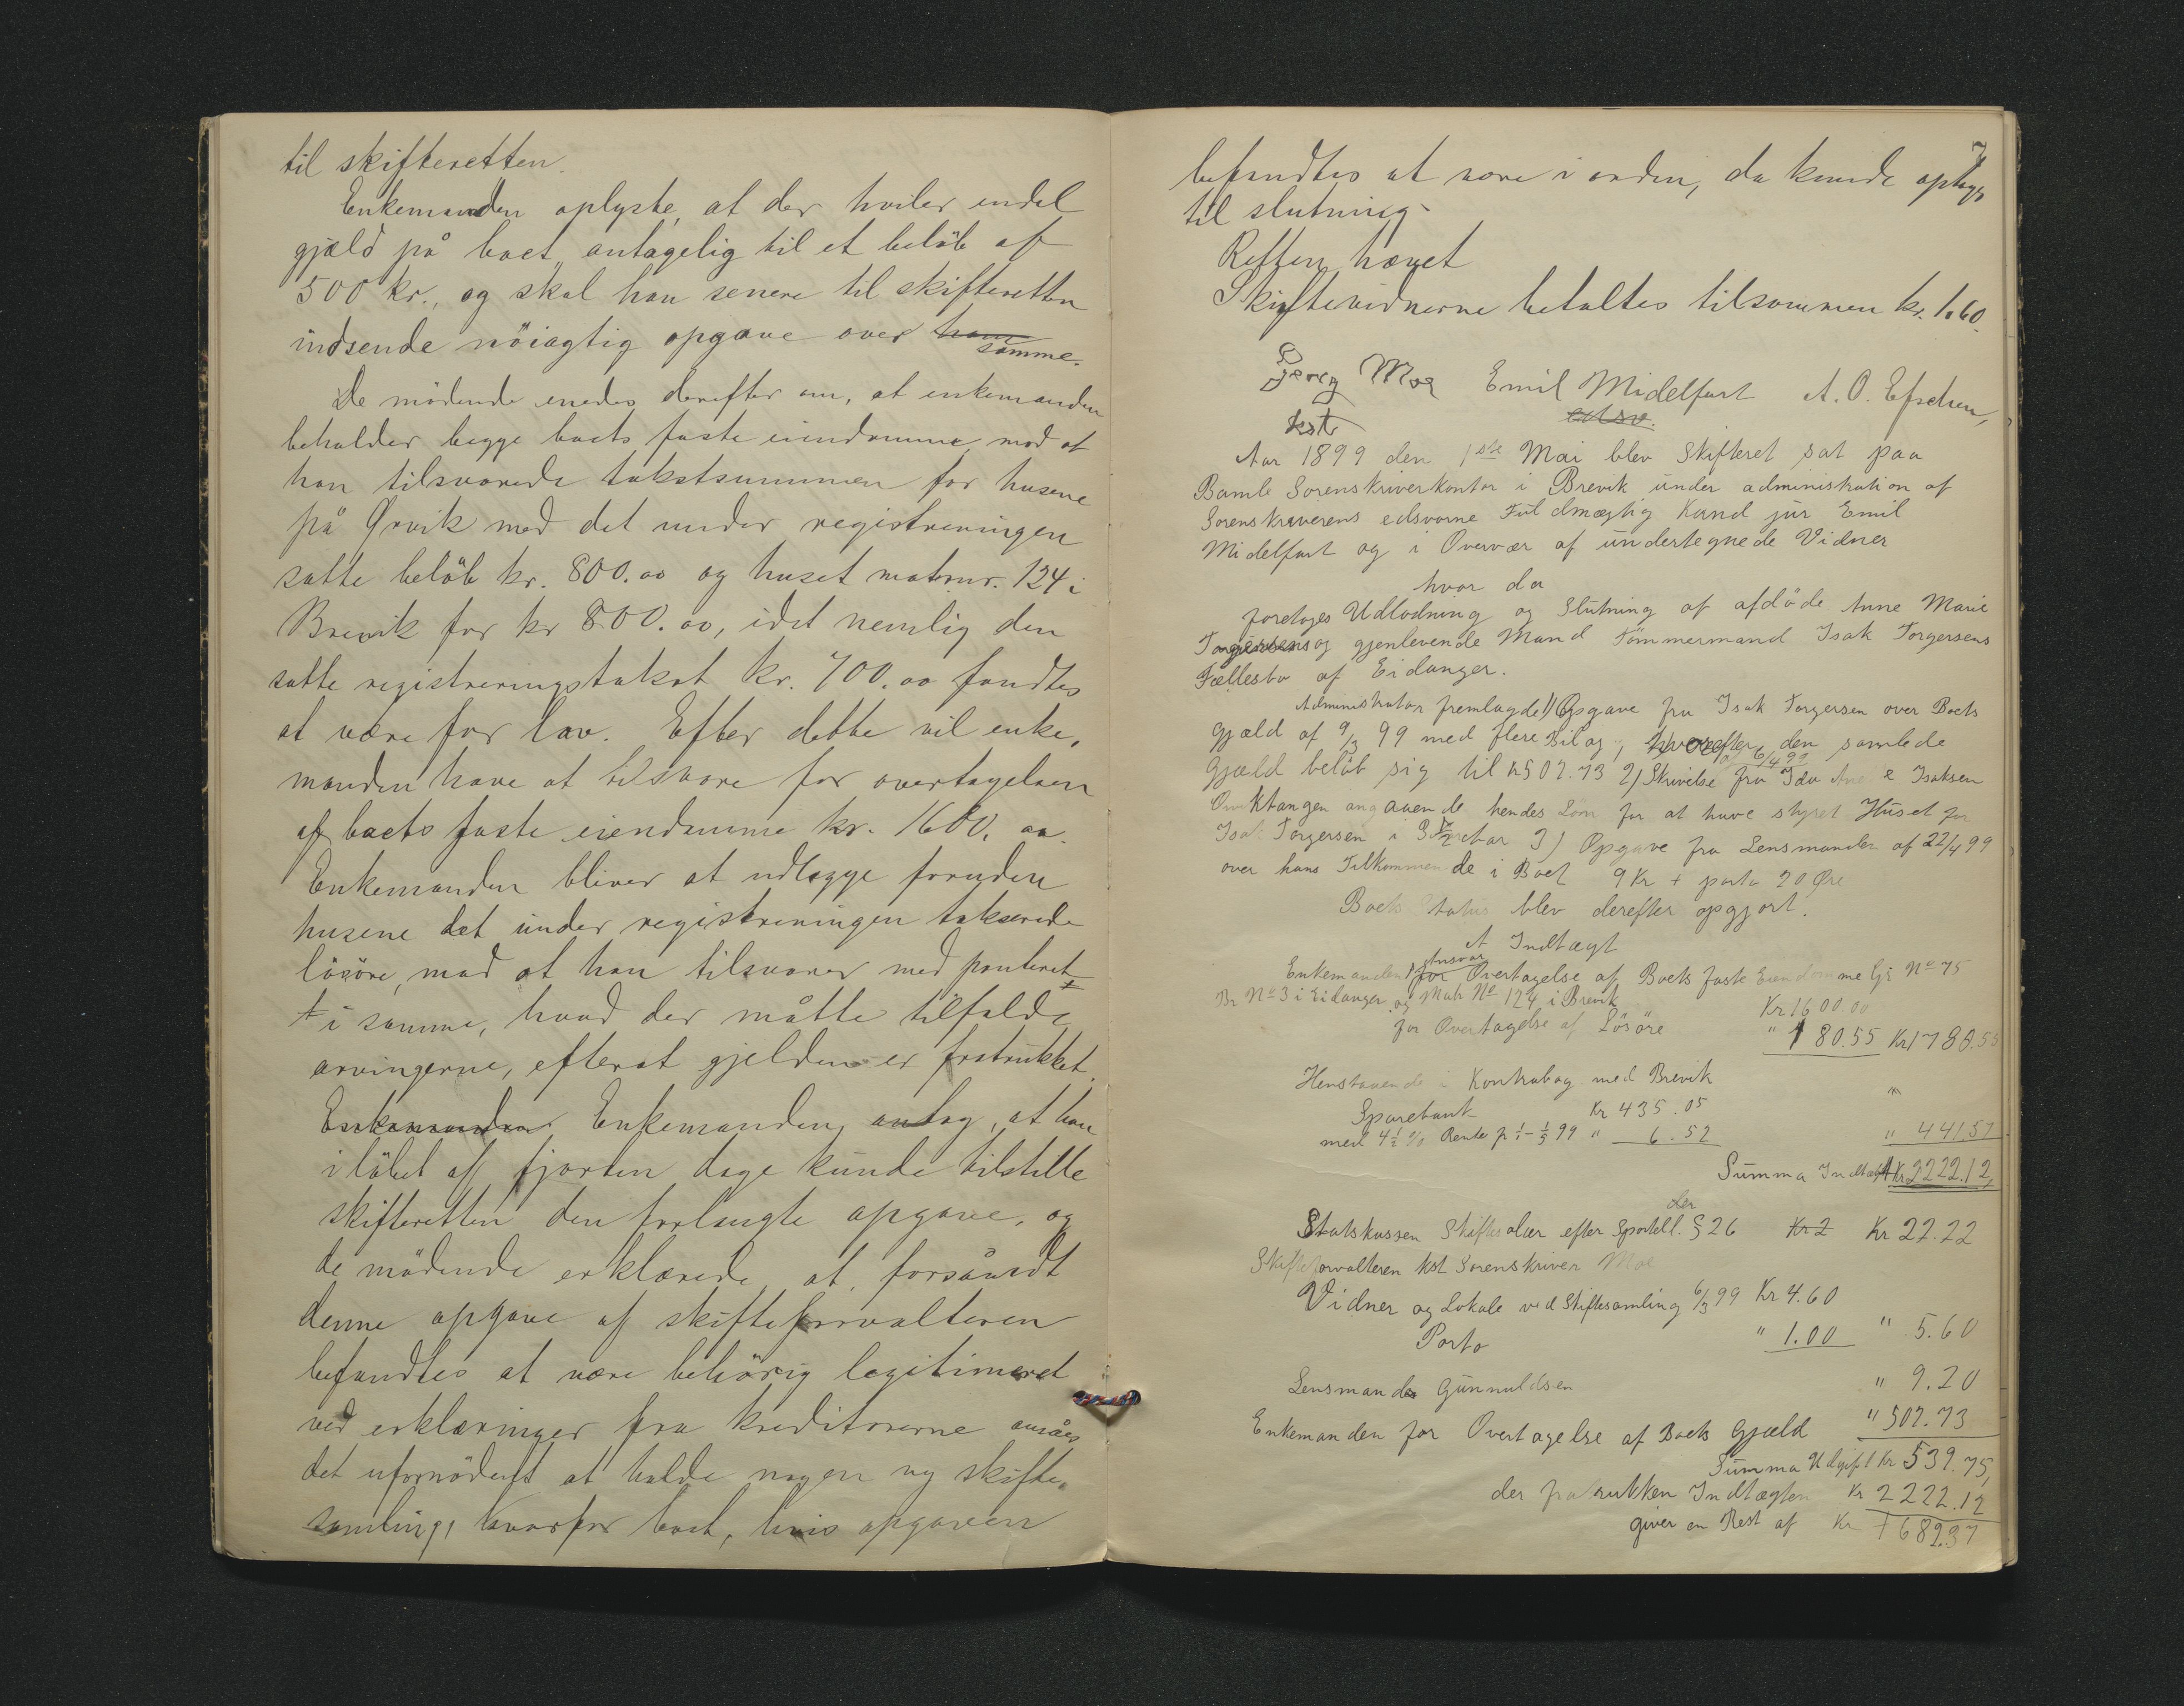 til skifteretten.
Enkemanden oplyste, at der hviler endel
gjæld på boet, antagelig til et beløb af
500 kr., og skal han senere til skifteretten
indsende nöiagtig opgave over ham
samme.
De mødende enedes derefter om, at enkemanden
beholder begge boets faste eiendomme mod at
han tilsvarede takstsummen for husene
på Ørvik med det under registreringen
satte beløb kr. 800.00 og huset matrnr. 124 i
Brevik for kr 800.00, idet nemlig den
satte registreringstakst kr. 700.00 fandtes
at være for lav. Efter dette vil enke,
manden have at tilsvare for overtagelsen
af boets faste eiendomme kr. 1600.00.
Enkemanden bliver at udlægge foruden
husene det under registreringen takserede
løsøre, mod at han tilsvarer med panteret
+ i samme, hvad der måtte tilfalde
arvingerne, efterat gjelden er fratrukket.
Enkemanden Enkemanden antog, at han
i løbet af fjorten dage kunde tilstille
skifteretten den forlangte opgave, og
de mødende erklærede, at forsåvidt
denne opgave af skifteforvalteren
befandtes at være behörig legitimeret
ved erklæringer fra kreditorerne ansåes
det ufornødent at holde nogen ny skifte,
samling, hvorfor boet, hvis opgaven
7
befandtes at være i orden, da kunde optages
til slutning.
Retten hævet
Skiftevidnerne betaltes tilsammen kr. 1.60.
Georg Moe Emil Midelfart A. O. Efschen,
kst. edsv.
Aar 1899 den 1ste Mai blev Skifteret sat paa
Bamle Sorenskriverkontor i Brevik under administration af
Sorenskriverens edsvorne Fuldmægtig Kand jur Emil
Midelfart og i Overvær af undertegnede Vidner
hvor da
foretoges Udlodning og Slutning af afdøde Anne Marie
Torgersens og gjenlevende Mand Tømmermand Isak Torgersens
Fællesbo af Eidanger.
Administrator fremlagde 1) Opgave fra Isak Torgersen over Boets
Gjæld af 9/3 99 med flere Bilag, hvorefter den samlede
af 6/4 99
Gjæld beløb sig til kr 502.73 2) Skrivelse fra Ida Isaksen
angaaende hendes Løn for at have styret Huset for
Isak Torgersen i 3) Opgave fra Lensmanden af 22/4 99
over hans Tilkommende i Boet 9 Kr + porto 20 Øre
Boets Status blev derefter opgjort.
A Indtægt
Enkemanden tilsvar for Overtagelse af Boets faste Eiendomme Gr No 75
Br No 3 i Eidanger og Matr No 124 i Brevik Kr 1600.00
for Overtagelse af Løsøre " 180.55 Kr 1780.55
Henstaaende i Kontrabog med Brevik
Sparebank Kr 435.05
med 4½ % Rente fr 1/1 - 1/5 99 " 6.52 " 441.57
Summa Indtægt Kr 2222.12,
der
Statskassen Skiftesalær efter Sportell. § 26 Kr 2 Kr 22.22
Skifteforvalteren kst Sorenskriver Moe
Vidner og Lokale ved Skiftesamling 6/3 99 Kr 4.60
Porto " 1.00 " 5.60
Lensmanden Gunnuldsen " 9.20
Enkemanden for Overtagelse af Boets Gjæld " 502.73
Summa Udgift Kr 539.75,
der fratrukken Indtægten Kr 2222.12
giver en Rest af Kr 1682.37